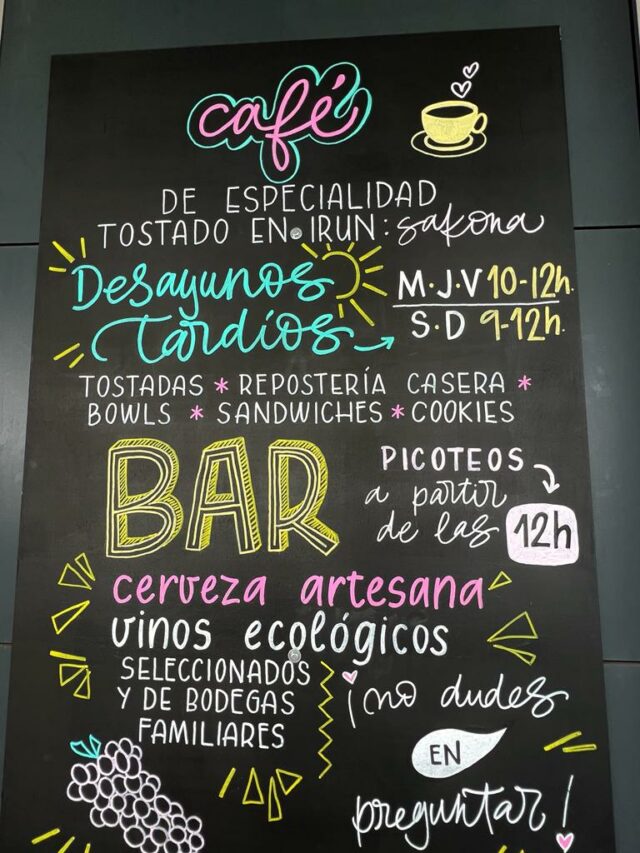 café
DE ESPECIALIDAD
TOSTADO EN IRUN: sakona
Desayunos
tardíos
M·J·V 10-12h.
S·D 9-12h.
TOSTADAS * REPOSTERÍA CASERA *
BOWLS * SANDWICHES * COOKIES
BAR
PICOTEOS
a partir
de las 12h
cerveza artesana
vinos ecológicos
SELECCIONADOS
Y DE BODEGAS
FAMILIARES
¡no dudes
EN
preguntar!